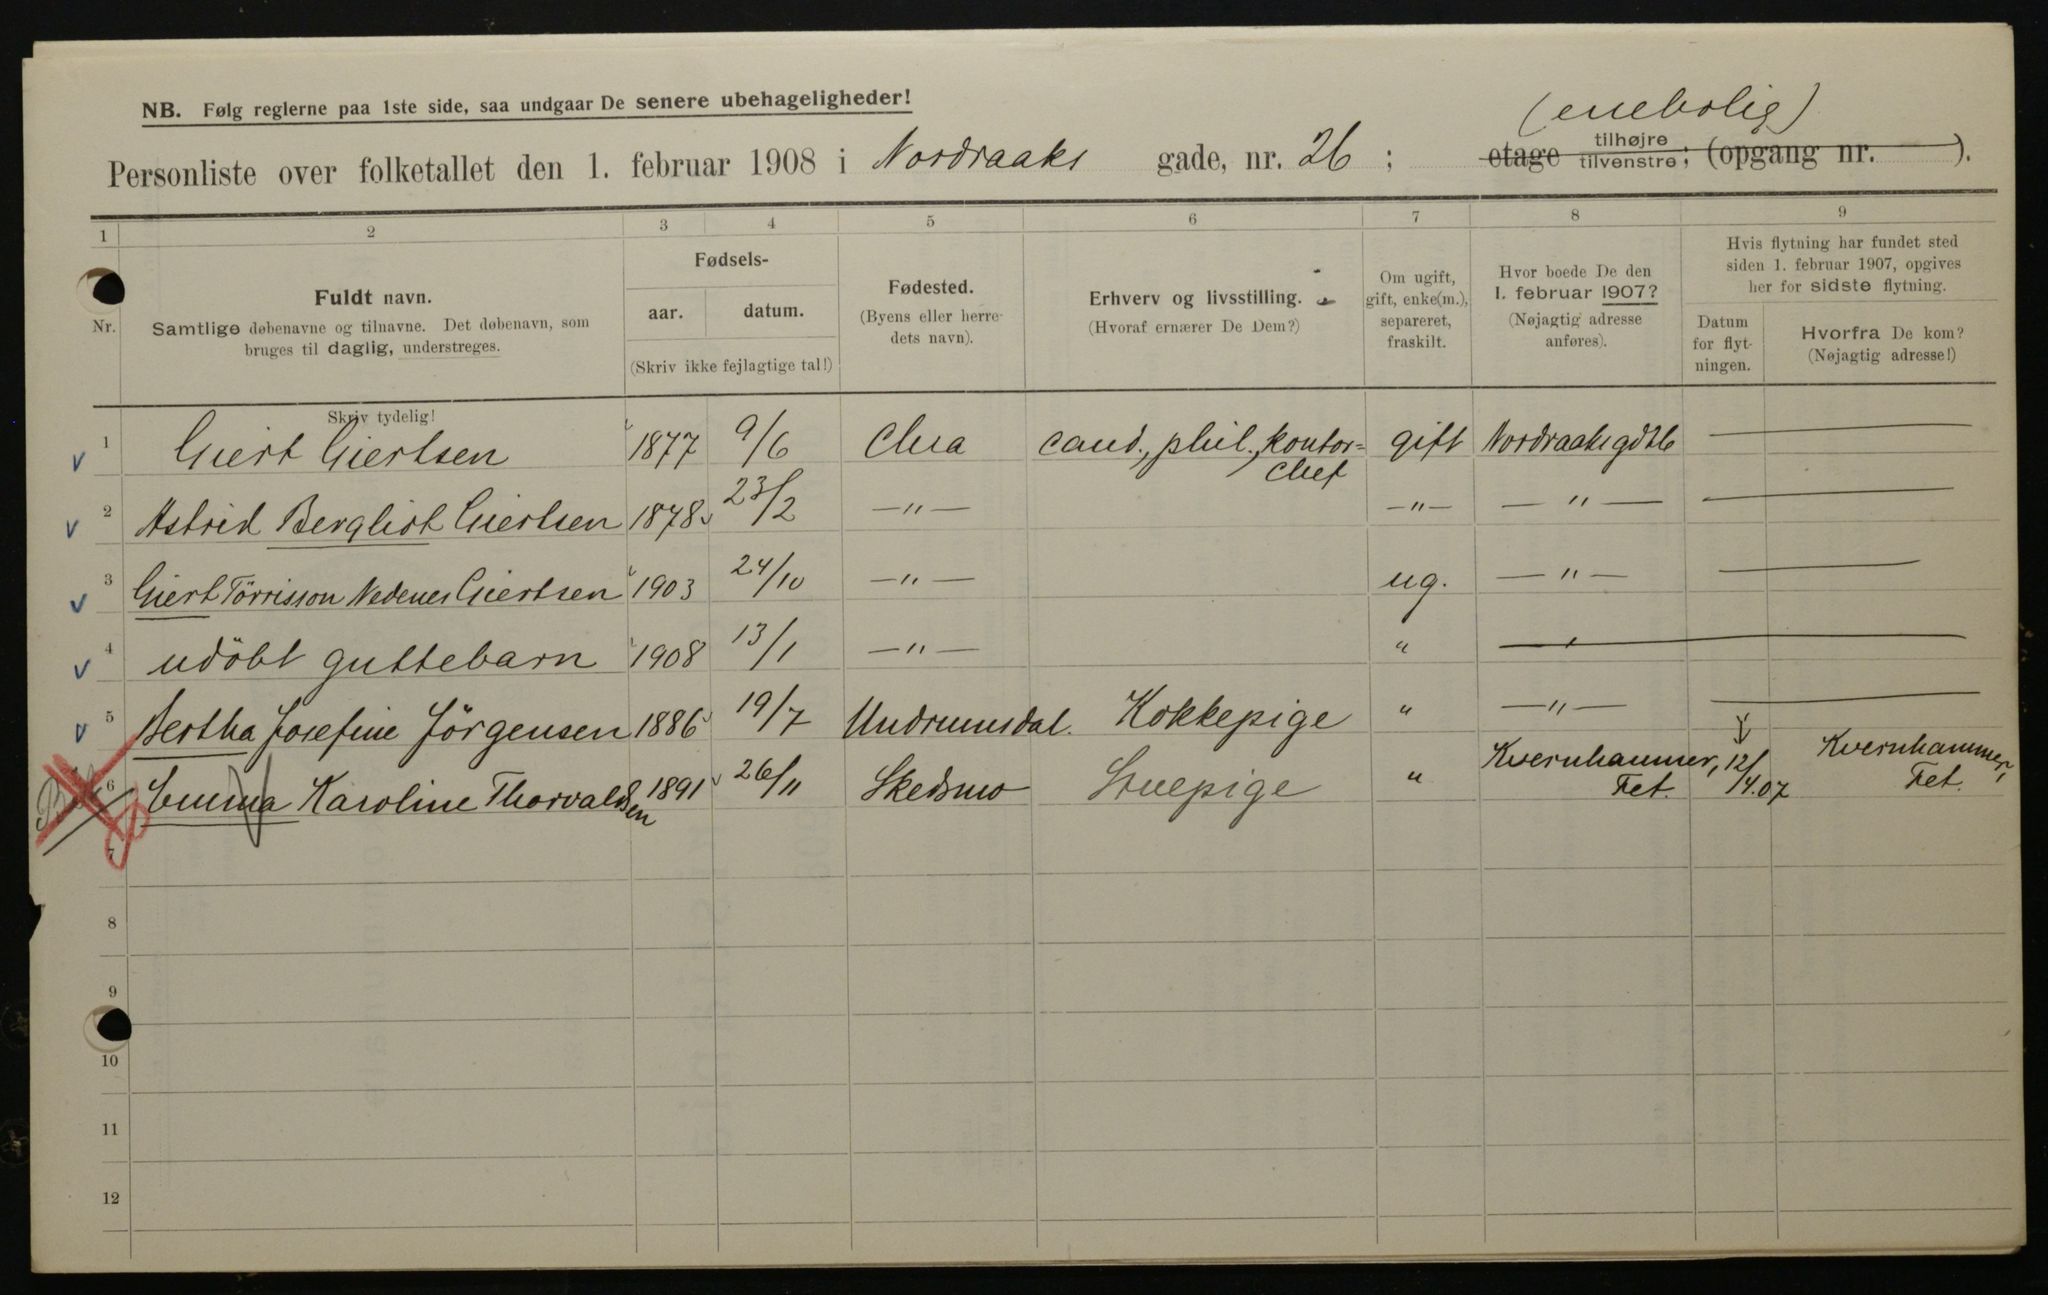 NB. Følg reglerne paa 1ste side, saa undgaar De senere ubehageligheder!
(enebolig)
Personliste over folketallet den 1. februar 1908 i Nordraaks gade, nr. 26 ; etage tilhøjre tilvenstre; (opgang nr. ).
1 2 3 4 5 6 7 8 9
Nr.
Fuldt navn.
Samtlige døbenavne og tilnavne. Det døbenavn, som
bruges til daglig, understreges.
Fødsels-
aar. datum.
(Skriv ikke fejlagtige tal!)
Fødested.
(Byens eller herre-
dets navn).
Erhverv og livsstilling.
(Hvoraf ernærer De Dem?)
Om ugift,
gift, enke(m.),
separeret,
fraskilt.
Hvor boede De den
1. februar 1907?
(Nøjagtig adresse
anføres).
Hvis flytning har fundet sted
siden 1. februar 1907, opgives
her for sidste flytning.
Datum
for flyt-
ningen.
Hvorfra De kom?
(Nøjagtig adresse!)
Skriv tydelig!
1 Giert Giertsen 1877 9/6 Chra cand. phil., kontor-
chef gift Nordraaksgd 26 —
2 Astrid Bergliot Giertsen 1878 23/2 —"— —"— — " — —
3 Giert Törrisson Nedenes Giertsen 1903 24/10 —"— ug. — " — —
4 udöbt guttebarn 1908 13/1 —"— " —
5 Bertha Josefine Jörgensen 1886 19/7 Undrumsdal. Kokkepige " —"— —
6 Emma Karoline Thorvaldsen 1891 26/11 Skedsmo Stuepige " Kvernhammer, Fet. 12/14.07 Kvernhammer, Fet.
7
8
9
10
11
12